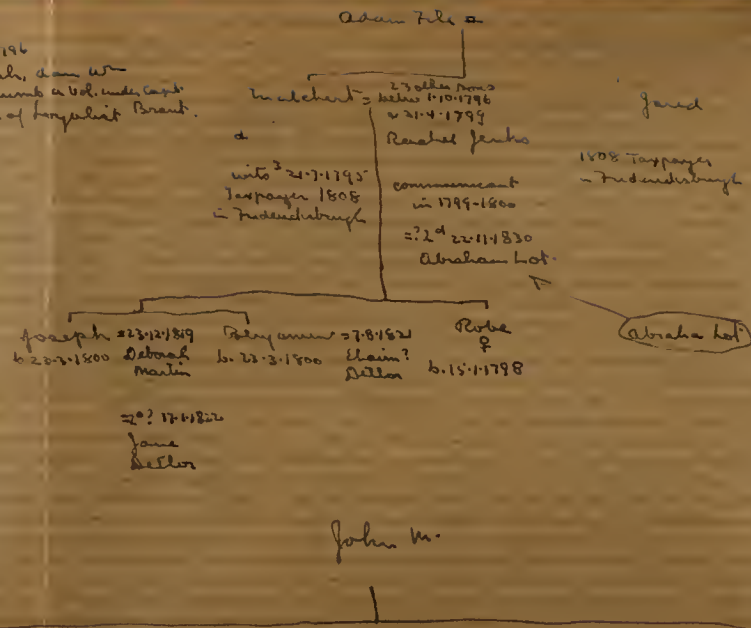 Adam File =
1796
Vol. under Capt.
of Loyalist Brant.
2 3 other sons
Malchert = before 1-10-1796
21-4-1799
Rachel Jenks
d
wits 3 21-7-1795
Taxpayer 1808
in Fredericksburgh
communicant
in 1799-1800
=? 2d 22-11-1830
Abraham Lot.
Jared
1808 Taxpayer
in Fredericksburgh
Abraha Lot
Joseph =23-12-1819
b 23-3-1800 Deborah
Martin
=2d? 17-1-1822
Jane
Detlor
Benjamin =7-8-1821
b. 23-3-1800
Detlor
Robe
♀
b. 15-1-1798
John M.